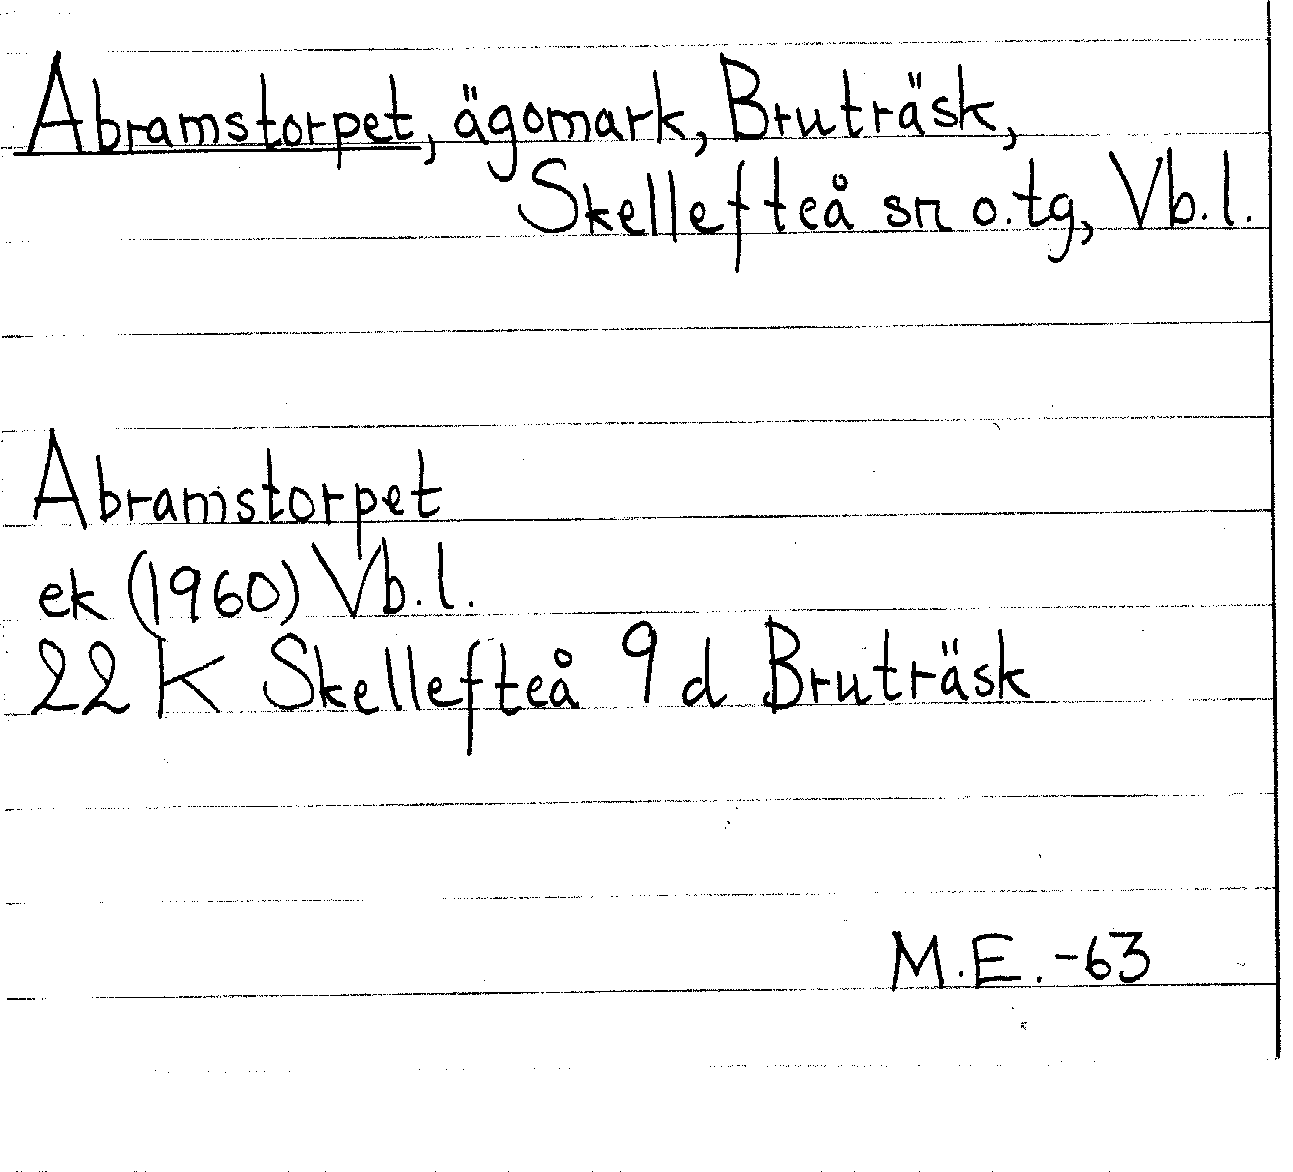 Abramstorpet, ägomark, Bruträsk,
Skellefteå sn o.tg, Vb.l.
Abramstorpet
ek (1960) Vb.l.
22 K Skellefteå 9 d Bruträsk
M.E.-63